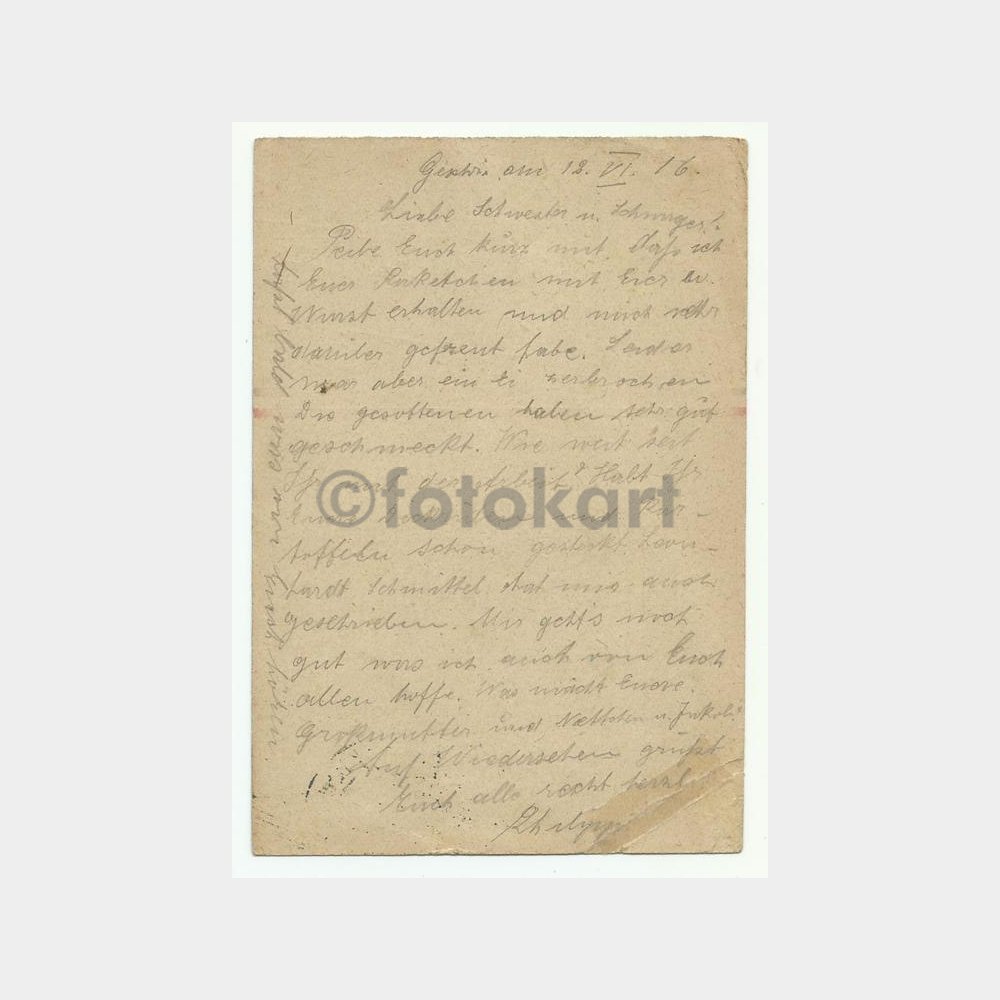 am 12. VI. 16.
Liebe Schwester u. Schwager!
Euch kurz mit, daß ich
Euer Paketchen mit Eier u.
Wurst erhalten und mich sehr
darüber gefreut habe. Leider
war aber ein Ei zerbrochen
Die gesottenen haben sehr gut
geschmeckt. Wie weit seit
Ihr mit der Arbeit? Habt Ihr
Eure und Kar-
toffeln schon gesteckt. Leon-
hardt Schmittel hat mir auch
geschrieben. Mir geht's noch
gut was ich auch von Euch
allen hoffe. Was macht Eure
Großmutter und Nettchen u. Jakob?
Auf Wiedersehen grüßt
Euch alle recht herzlich
Philipp
©fotokart